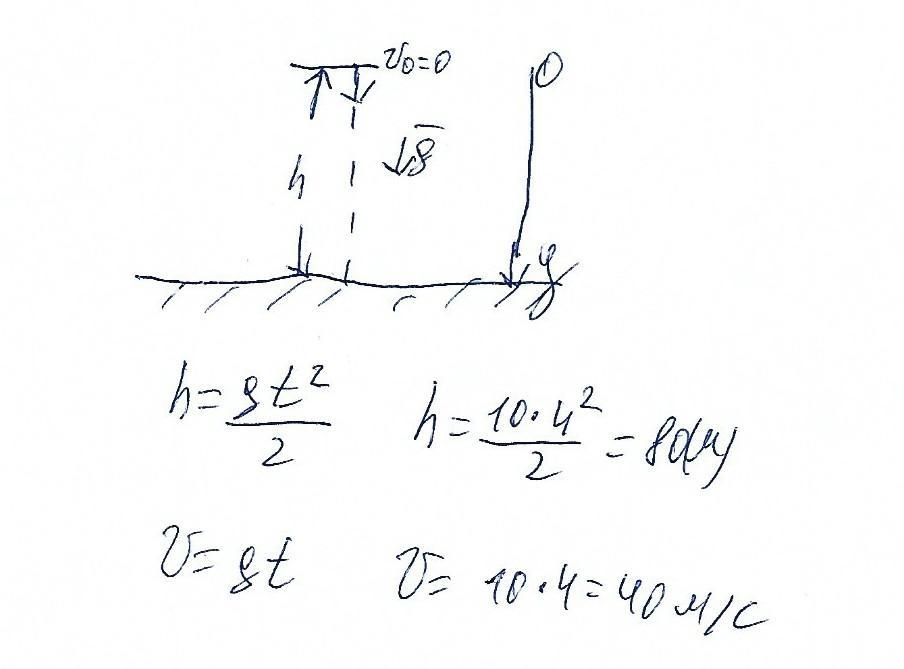 v₀=0
0
h
g
y
h = gt²/2 h = 10·4²/2 = 80(м)
v = gt v = 10·4 = 40 м/с